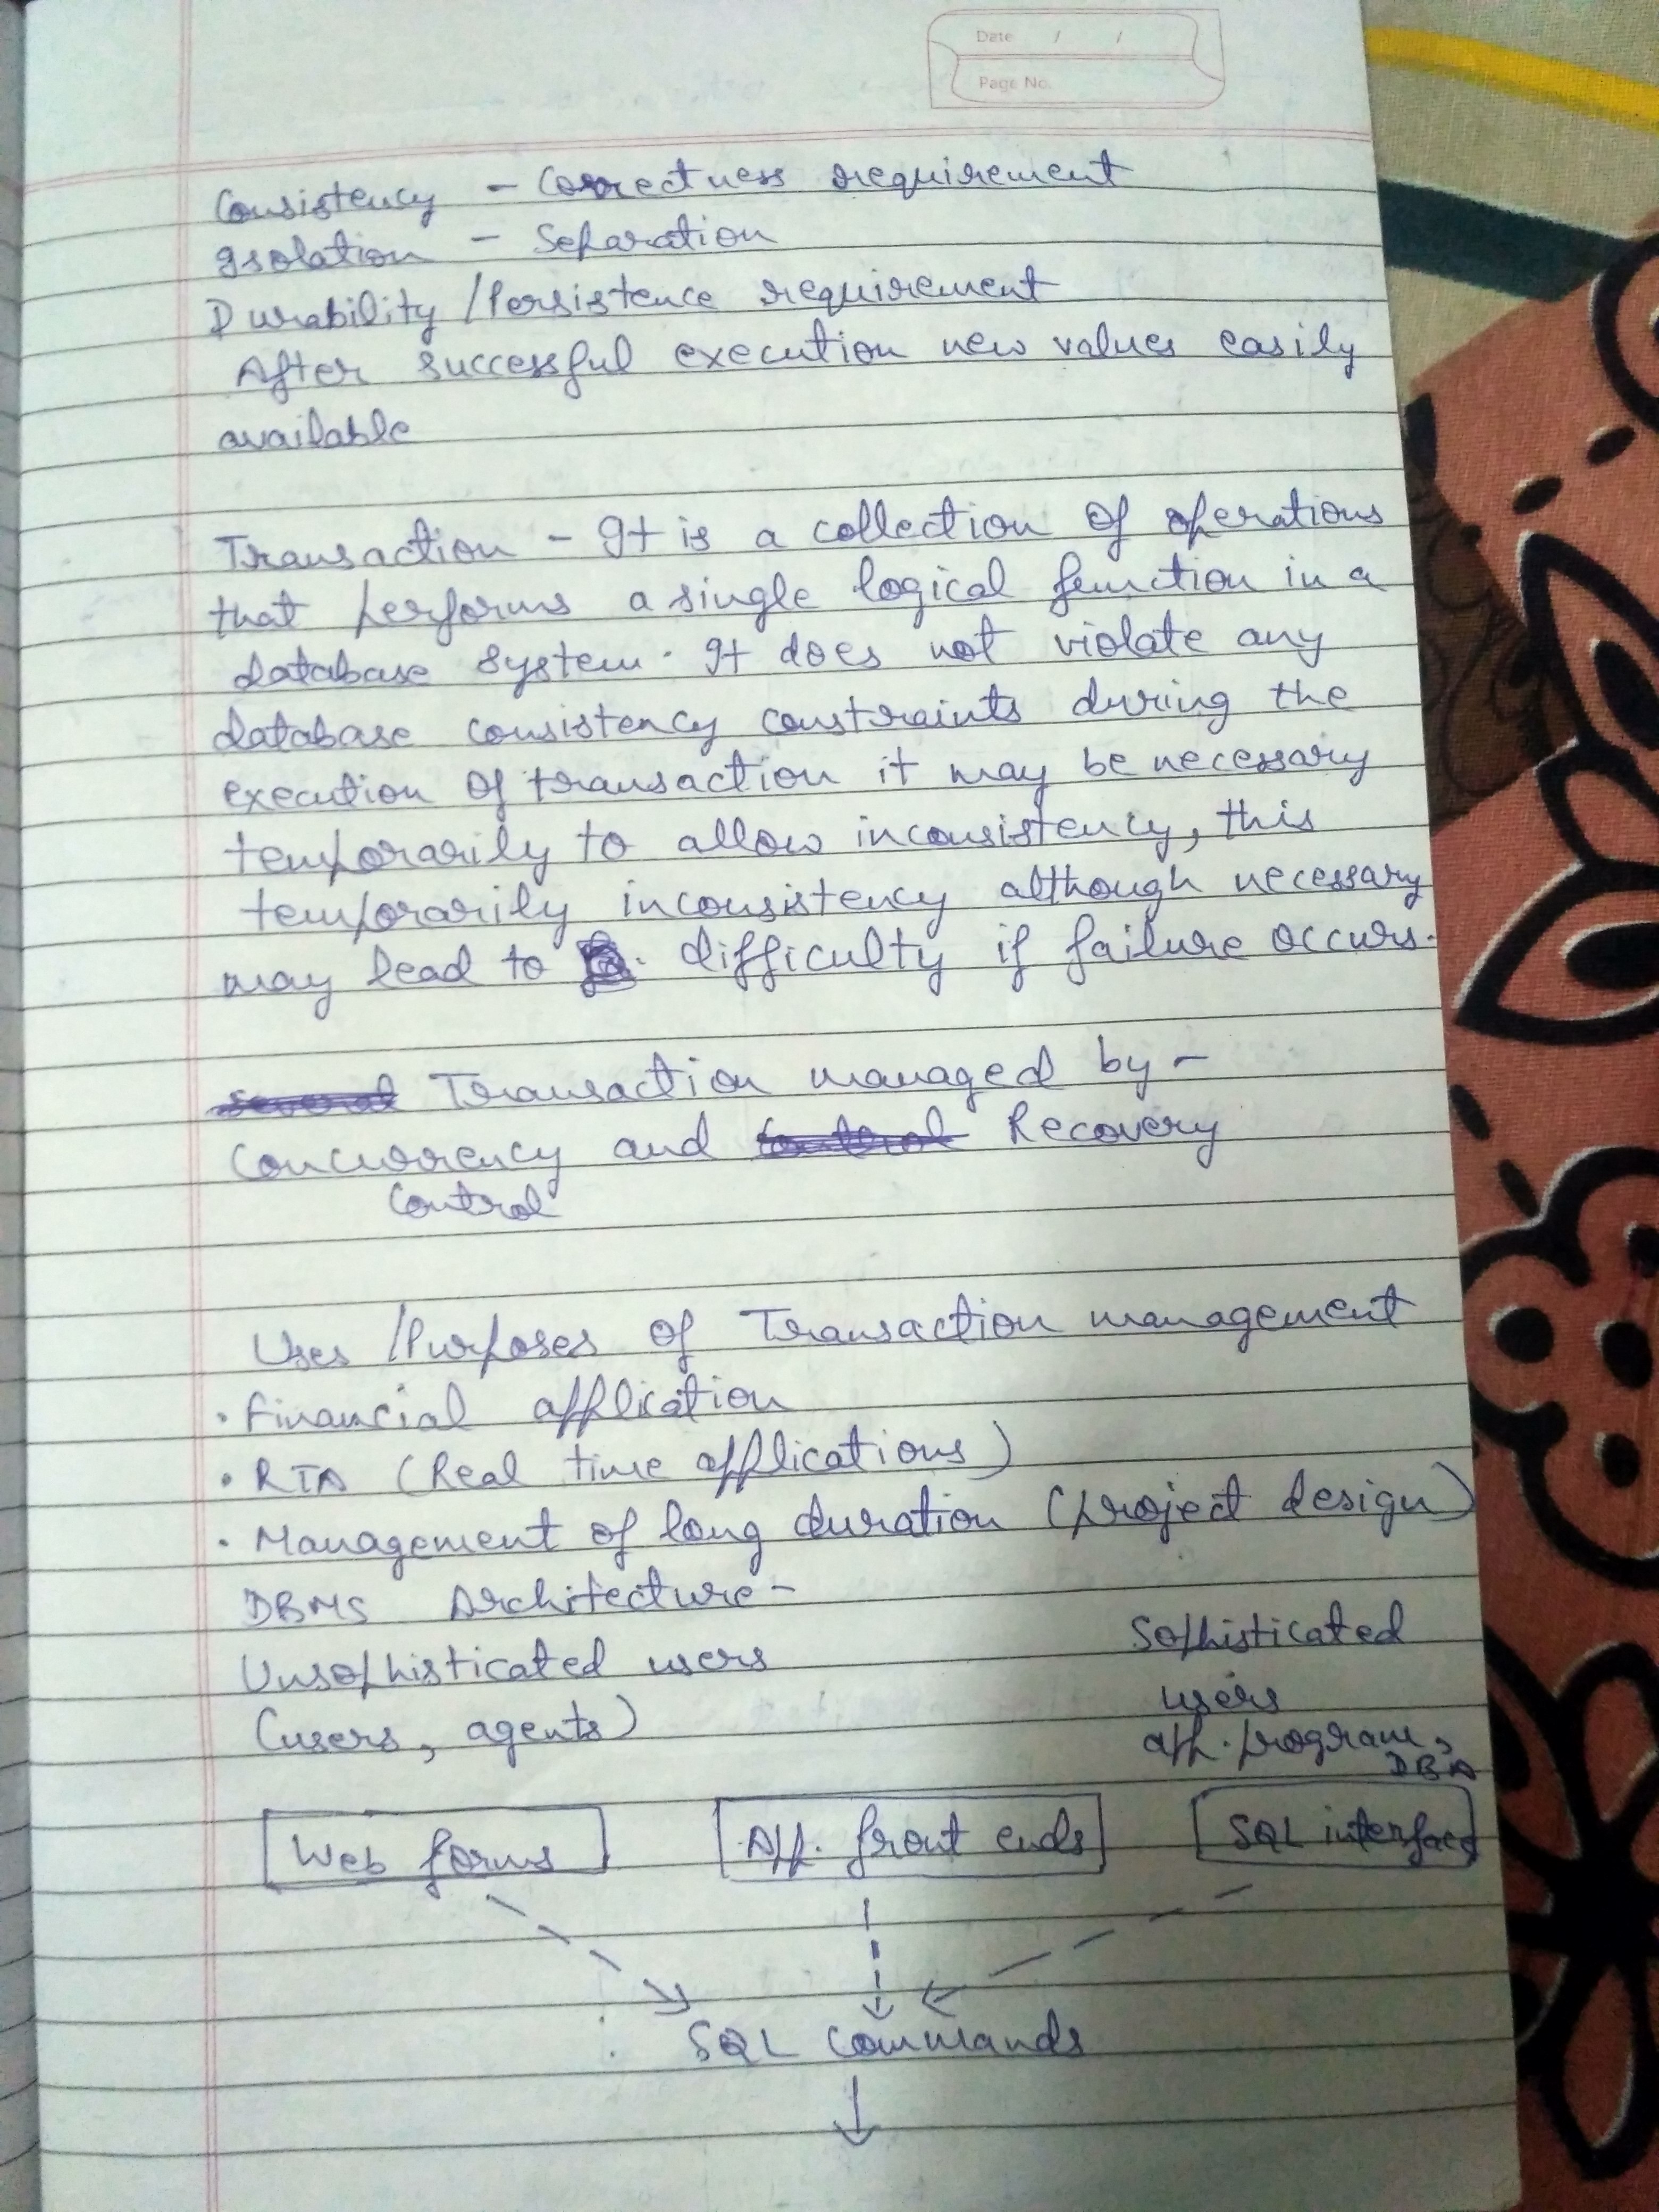 Date / /
Page No.
Consistency - Correctness requirement
Isolation - Separation
Durability /Persistence requirement
After successful execution new values easily
available
Transaction - It is a collection of operations
that performs a single logical function in a
database system. It does not violate any
database consistency constraints during the
execution of transaction it may be necessary
temporarily to allow inconsistency, this
temporarily inconsistency although necessary
may lead to difficulty if failure occurs.
several Transaction managed by -
Concurrency and control Recovery
Control
Uses /Purposes of Transaction management
• Financial application
• RTA (Real time applications)
• Management of long duration (project design)
DBMS Architecture -
Unsophisticated users Sophisticated
(users, agents) users
app. program,
DBA
Web forms App. front ends SQL interface
SQL Commands